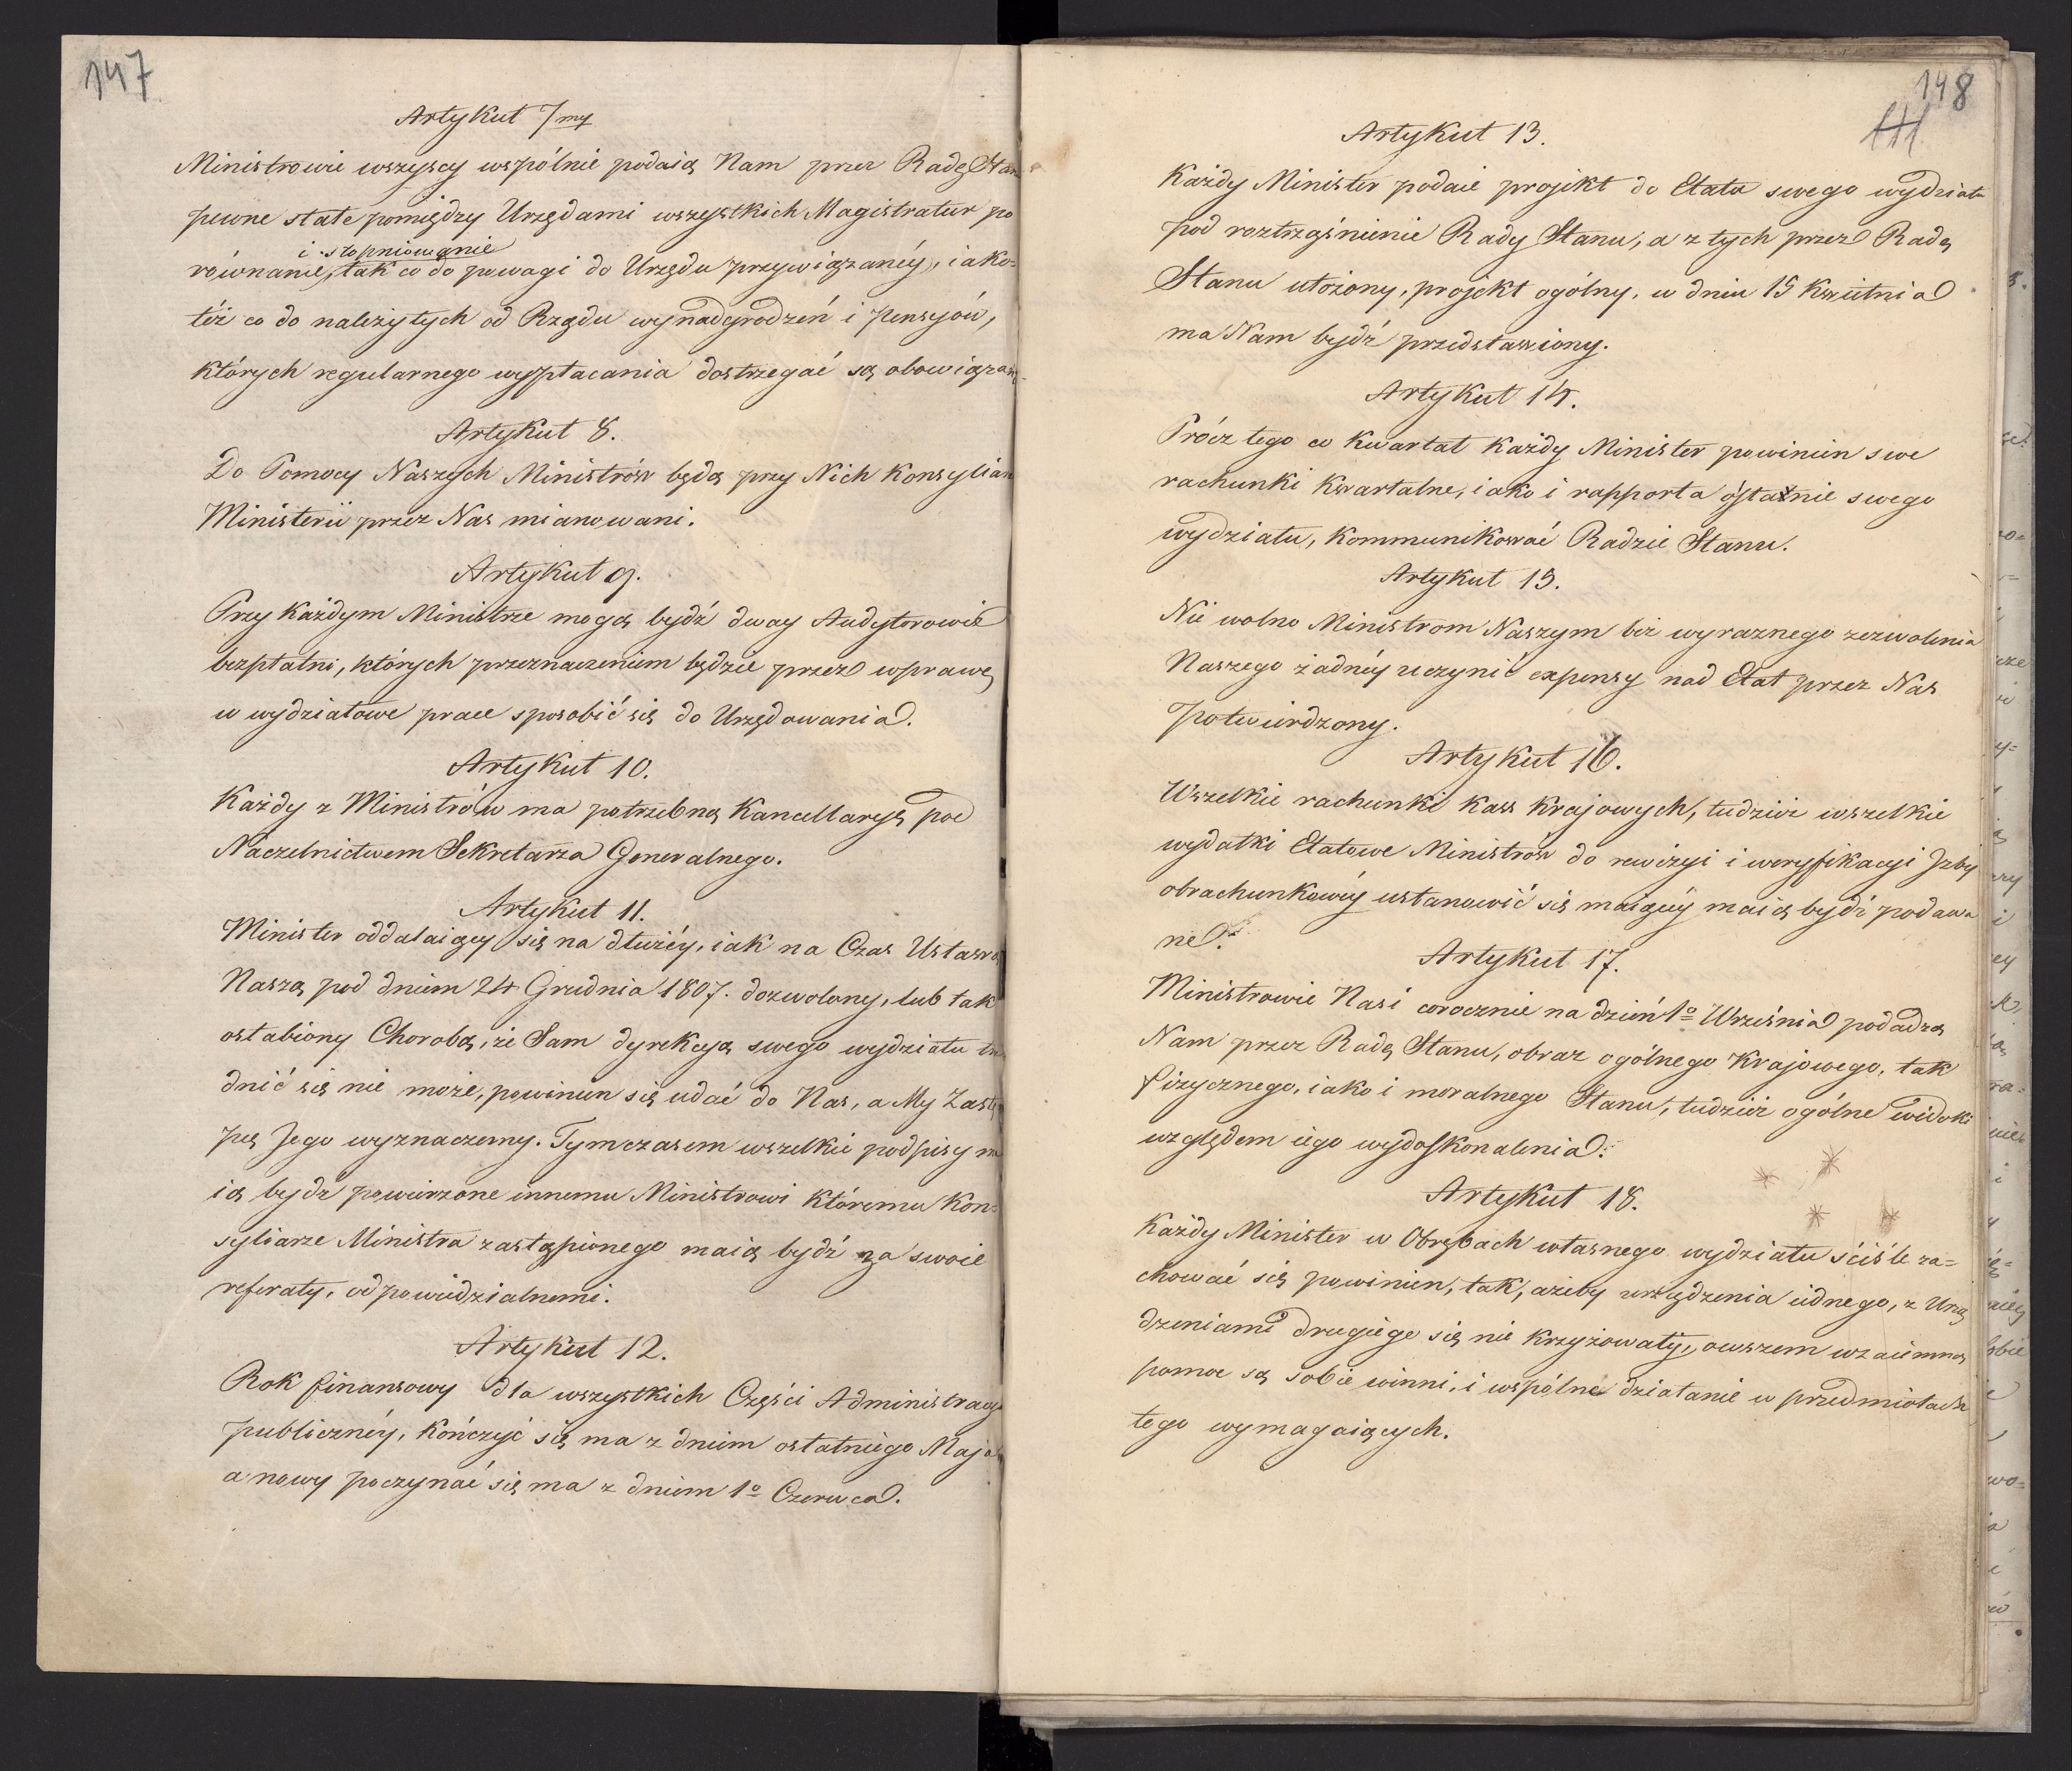 147
Artykuł 7my
Ministrowie wszyscy wspólnie podaią Nam przez Radę Stan
pewne stałe pomiędzy Urzędami wszystkich Magistratur po
i stopniowanie
równanie, tak co do powagi do Urzędu przywiązanéy, iako=
téż co do należytych od Rządu wynadgrodzeń i pensyów,
których regularnego wypłacania dostrzegać są obowiązan
Artykuł 8.
Do Pomocy Naszych Ministrów będą przy Nich Konsyliar
Ministerii przez Nas mianowani.
Artykuł 9.
Przy Każdym Ministrze mogą bydź dway Audytorowie
bezpłatni, których przeznaczeniem będzie przez wprawę
w wydziałowe prace sposobić się do Urzędowania.
Artykuł 10.
Każdy z Ministrów ma potrzebną Kancellaryą pod
Naczelnictwem Sekretarza Generalnego.
Artykuł 11.
Minister oddalaiący się na dłużéy, iak na Czas Ustawą
Naszą pod dniem 24 Grudnia 1807. dozwolony, lub tak
osłabiony Chorobą, że Sam dyrekcyą swego wydziału tru
dnić się nie może, powinien się udać do Nas, a My Zastę
pcę Jego wyznaczemy. Tymczasem wszelkie podpisy ma
ią bydź powierzone innemu Ministrowi któremu Kon=
syliarze Ministra zastąpionego maią bydź za swoie
referaty, odpowiedzialnemi.
Artykuł 12.
Rok finansowy dla wszystkich Części Administracyi
publicznéy, Kończyć się ma z dniem ostatniego Maja
a nowy poczynać się ma z dniem 1o Czerwca.
148
Artykuł 13.
Każdy Minister podaie projekt do Etatu swego wydziału
pod roztrząśnienie Rady Stanu, a z tych przez Radę
Stanu ułożony, projekt ogólny, w dniu 15 Kwietnia
ma Nam bydź przedstawiony.
Artykuł 14.
Prócz tego co Kwartał Każdy Minister powinien swe
rachunki Kwartalne, iako i rapporta o stanie swego
wydziału, Kommunikować Radzie Stanu.
Artykuł 15.
Nie wolno Ministrom Naszym bez wyraznego zezwolenia
Naszego żadnéy uczynić expensy nad Etat przez Nas
potwierdzony.
Artykuł 16.
Wszelkie rachunki Kass Krajowych, tudzież wszelkie
wydatki Etatowe Ministrów do rewizyi i weryfikacyi Izby
obrachunkowéy ustanowić się maiącéy maią bydź podawa
ne.
Artykuł 17.
Ministrowie Nasi corocznie na dzień 1o Września podadzą
Nam przez Radę Stanu, obraz ogólnego Krajowego, tak
fizycznego, iako i moralnego Stanu, tudzież ogólne widoki
względem iego wydoskonalenia.
Artykuł 18.
Każdy Minister w Obrębach własnego wydziału ściśle za=
chować się powinien, tak, ażeby urządzenia iednego, z Urzą
dzeniami drugiego się nie krzyżowały, owszem wzaiemną
pomoc są sobie winni, i wspólne działanie w przedmiotach
tego wymagaiących.